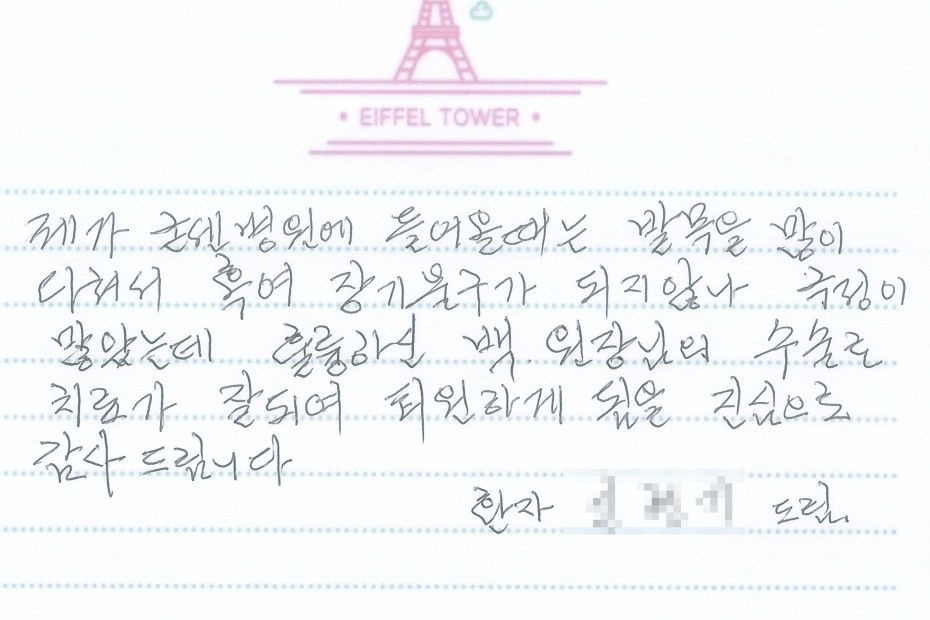 • EIFFEL TOWER •
제가 굳센병원에 들어올때는 발목을 많이
다쳐서 혹여 장기불구가 되지않나 걱정이
많았는데 훌륭하신 백.원장님의 수술로
치료가 잘되여 퇴원하게 됨을 진심으로
감사 드립니다
환자 드림.